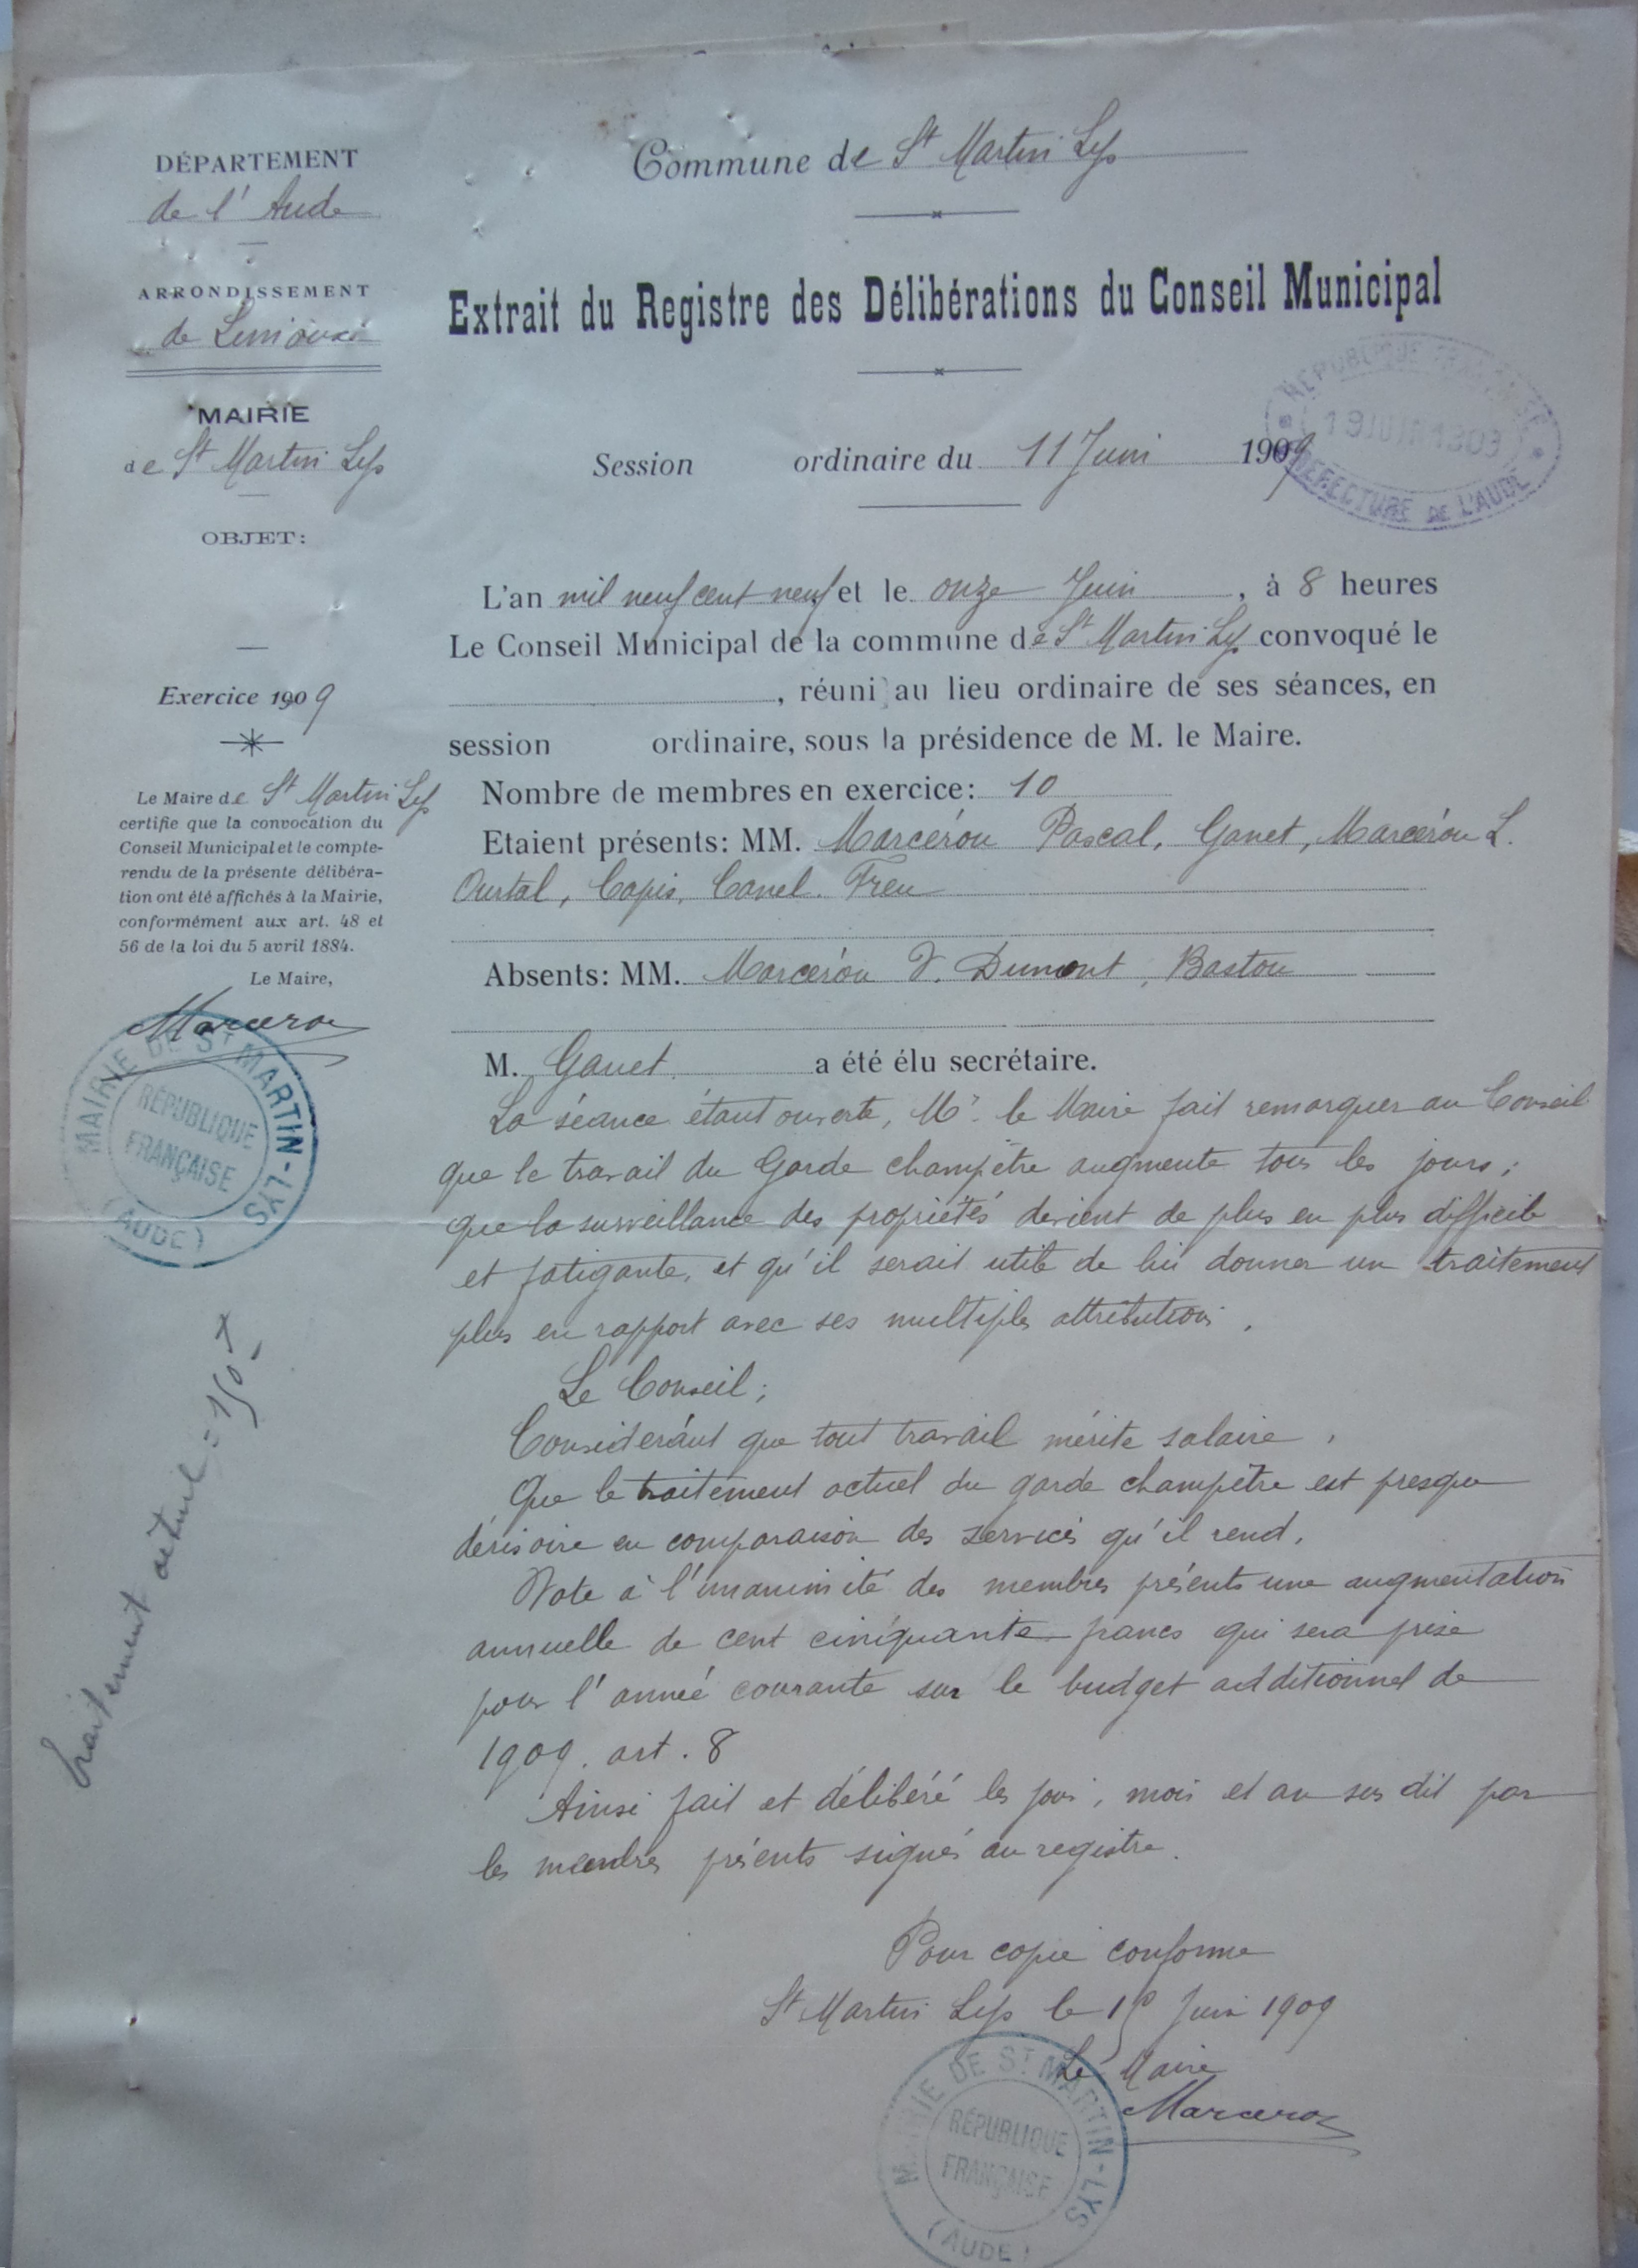 DÉPARTEMENT
de l'Aude
ARRONDISSEMENT
de Limoux
MAIRIE
de St Martin Lys
OBJET:
Exercice 1909
Le Maire de St Martin Lys
certifie que la convocation du
Conseil Municipal et le compte-
rendu de la présente délibéra-
tion ont été affichés à la Mairie,
conformément aux art. 48 et
56 de la loi du 5 avril 1884.
Le Maire,
Marcerou
MAIRIE DE ST MARTIN-LYS
RÉPUBLIQUE
FRANÇAISE
(AUDE)
traitement actuel = 150 f
Commune de St Martin Lys
Extrait du Registre des Délibérations du Conseil Municipal
RÉPUBLIQUE FRANÇAISE
19 JUIN 1909
PRÉFECTURE DE L'AUDE
Session ordinaire du 11 Juin 1909
L'an mil neuf cent neuf et le onze Juin, à 8 heures
Le Conseil Municipal de la commune de St Martin Lys convoqué le
, réuni au lieu ordinaire de ses séances, en
session ordinaire, sous la présidence de M. le Maire.
Nombre de membres en exercice: 10
Etaient présents: MM. Marcérou Pascal, Ganet, Marcérou L.
Ourtal, Capis, Canel. Freu
Absents: MM. Marcérou V. Dumont, Bastou
M. Ganet a été élu secrétaire.
La séance étant ouverte, Mr le Maire fait remarquer au Conseil
que le travail du Garde champêtre augmente tous les jours;
que la surveillance des propriétés devient de plus en plus difficile
et fatigante, et qu'il serait utile de lui donner un traitement
plus en rapport avec ses multiples attributions.
Le Conseil;
Considérant que tout travail mérite salaire,
Que le traitement actuel du garde champêtre est presque
dérisoire en comparaison des services qu'il rend,
Vote à l'unanimité des membres présents une augmentation
annuelle de cent cinquante francs qui sera prise
pour l'année courante sur le budget additionnel de
1909. art. 8
Ainsi fait et délibéré les jour, mois et an sus dit par
les membres présents signés au registre.
Pour copie conforme
St Martin Lys le Juin 1909
Le Maire
Marcerou
MAIRIE DE ST MARTIN-LYS
RÉPUBLIQUE
FRANÇAISE
(AUDE)